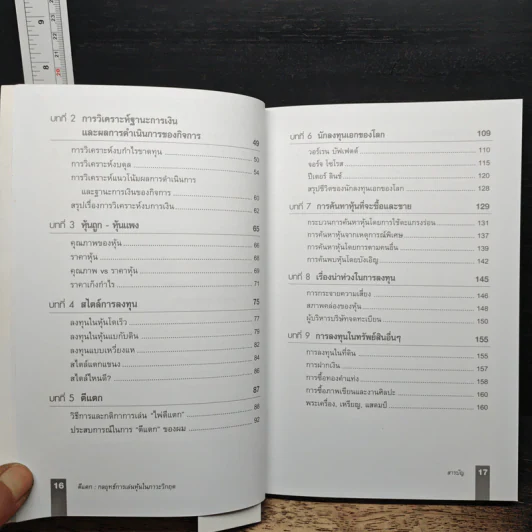 8
9
บทที่ 2 การวิเคราะห์ฐานะการเงิน
และผลการดำเนินการของกิจการ 49
การวิเคราะห์งบกำไรขาดทุน 50
การวิเคราะห์งบดุล 54
การวิเคราะห์แนวโน้มผลการดำเนินการ
และฐานะการเงินของกิจการ 60
สรุปเรื่องการวิเคราะห์งบการเงิน 62
บทที่ 3 หุ้นถูก - หุ้นแพง 65
คุณภาพของหุ้น 66
ราคาหุ้น 68
คุณภาพ vs ราคาหุ้น 69
ราคาเก็งกำไร 71
บทที่ 4 สไตล์การลงทุน 75
ลงทุนในหุ้นโตเร็ว 77
ลงทุนในหุ้นแบกับดิน 79
ลงทุนแบบเหวี่ยงแห 82
สไตล์แตกแขนง 84
สไตล์ไหนดี? 86
บทที่ 5 ตีแตก 87
วิธีการและกติกาการเล่น "ไพ่ตีแตก" 88
ประสบการณ์ในการ "ตีแตก" ของผม 90
16 ตีแตก : กลยุทธ์การเล่นหุ้นในภาวะวิกฤต
บทที่ 6 นักลงทุนเอกของโลก 109
วอร์เรน บัฟเฟตต์ 110
จอร์จ โซโรส 115
ปีเตอร์ ลินซ์ 120
สรุปชีวิตของนักลงทุนเอกของโลก 128
บทที่ 7 การค้นหาหุ้นที่จะซื้อและขาย 129
กระบวนการค้นหาหุ้นโดยการใช้ตะแกรงร่อน 131
การค้นหาหุ้นจากเหตุการณ์พิเศษ 137
การค้นหาหุ้นโดยการตามคนอื่น 139
การค้นพบหุ้นโดยบังเอิญ 142
บทที่ 8 เรื่องน่าห่วงในการลงทุน 145
การกระจายความเสี่ยง 146
สภาพคล่องของหุ้น 148
ผู้บริหารบริษัทจดทะเบียน 150
บทที่ 9 การลงทุนในทรัพย์สินอื่นๆ 155
การลงทุนในที่ดิน 155
การฝากเงิน 157
การซื้อทองคำแท่ง 158
การซื้อภาพเขียนและงานศิลปะ 160
พระเครื่อง, เหรียญ, แสตมป์ 160
สารบัญ 17